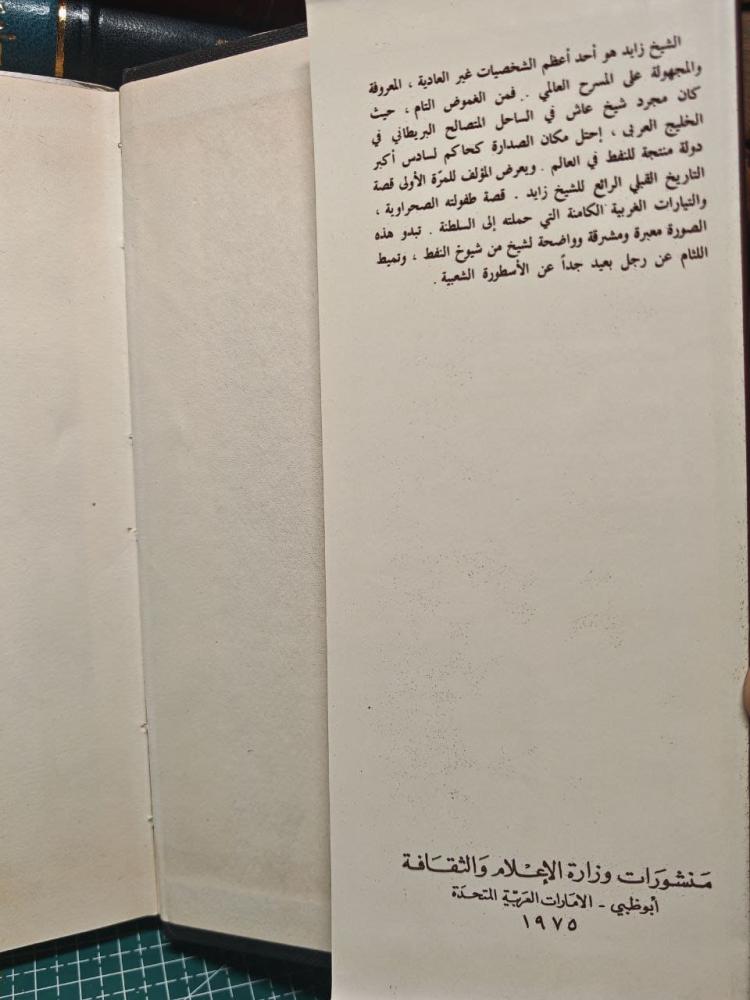 الشيخ زايد هو أحد أعظم الشخصيات غير العادية ، المعروفة
والمجهولة على المسرح العالمي . . فمن الغموض التام ، حيث
كان مجرد شيخ عاش في الساحل المتصالح البريطاني في
الخليج العربى ، إحتل مكان الصدارة كحاكم لسادس أكبر
دولة منتجة للنفط في العالم . ويعرض المؤلف للمرّة الأولى قصة
التاريخ القبلي الرائع للشيخ زايد . قصة طفولته الصحراوية ،
والتيارات الغربية الكامنة التي حملته إلى السلطنة . تبدو هذه
الصورة معبرة ومشرقة وواضحة لشيخ من شيوخ النفط ، وتميط
اللثام عن رجل بعيد جداً عن الأسطورة الشعبية .
مَنشورَات وزارة الإعْلام وَالثقَافة
أبوظبي - الامارات العَربيّة المتحدَة
١٩٧٥